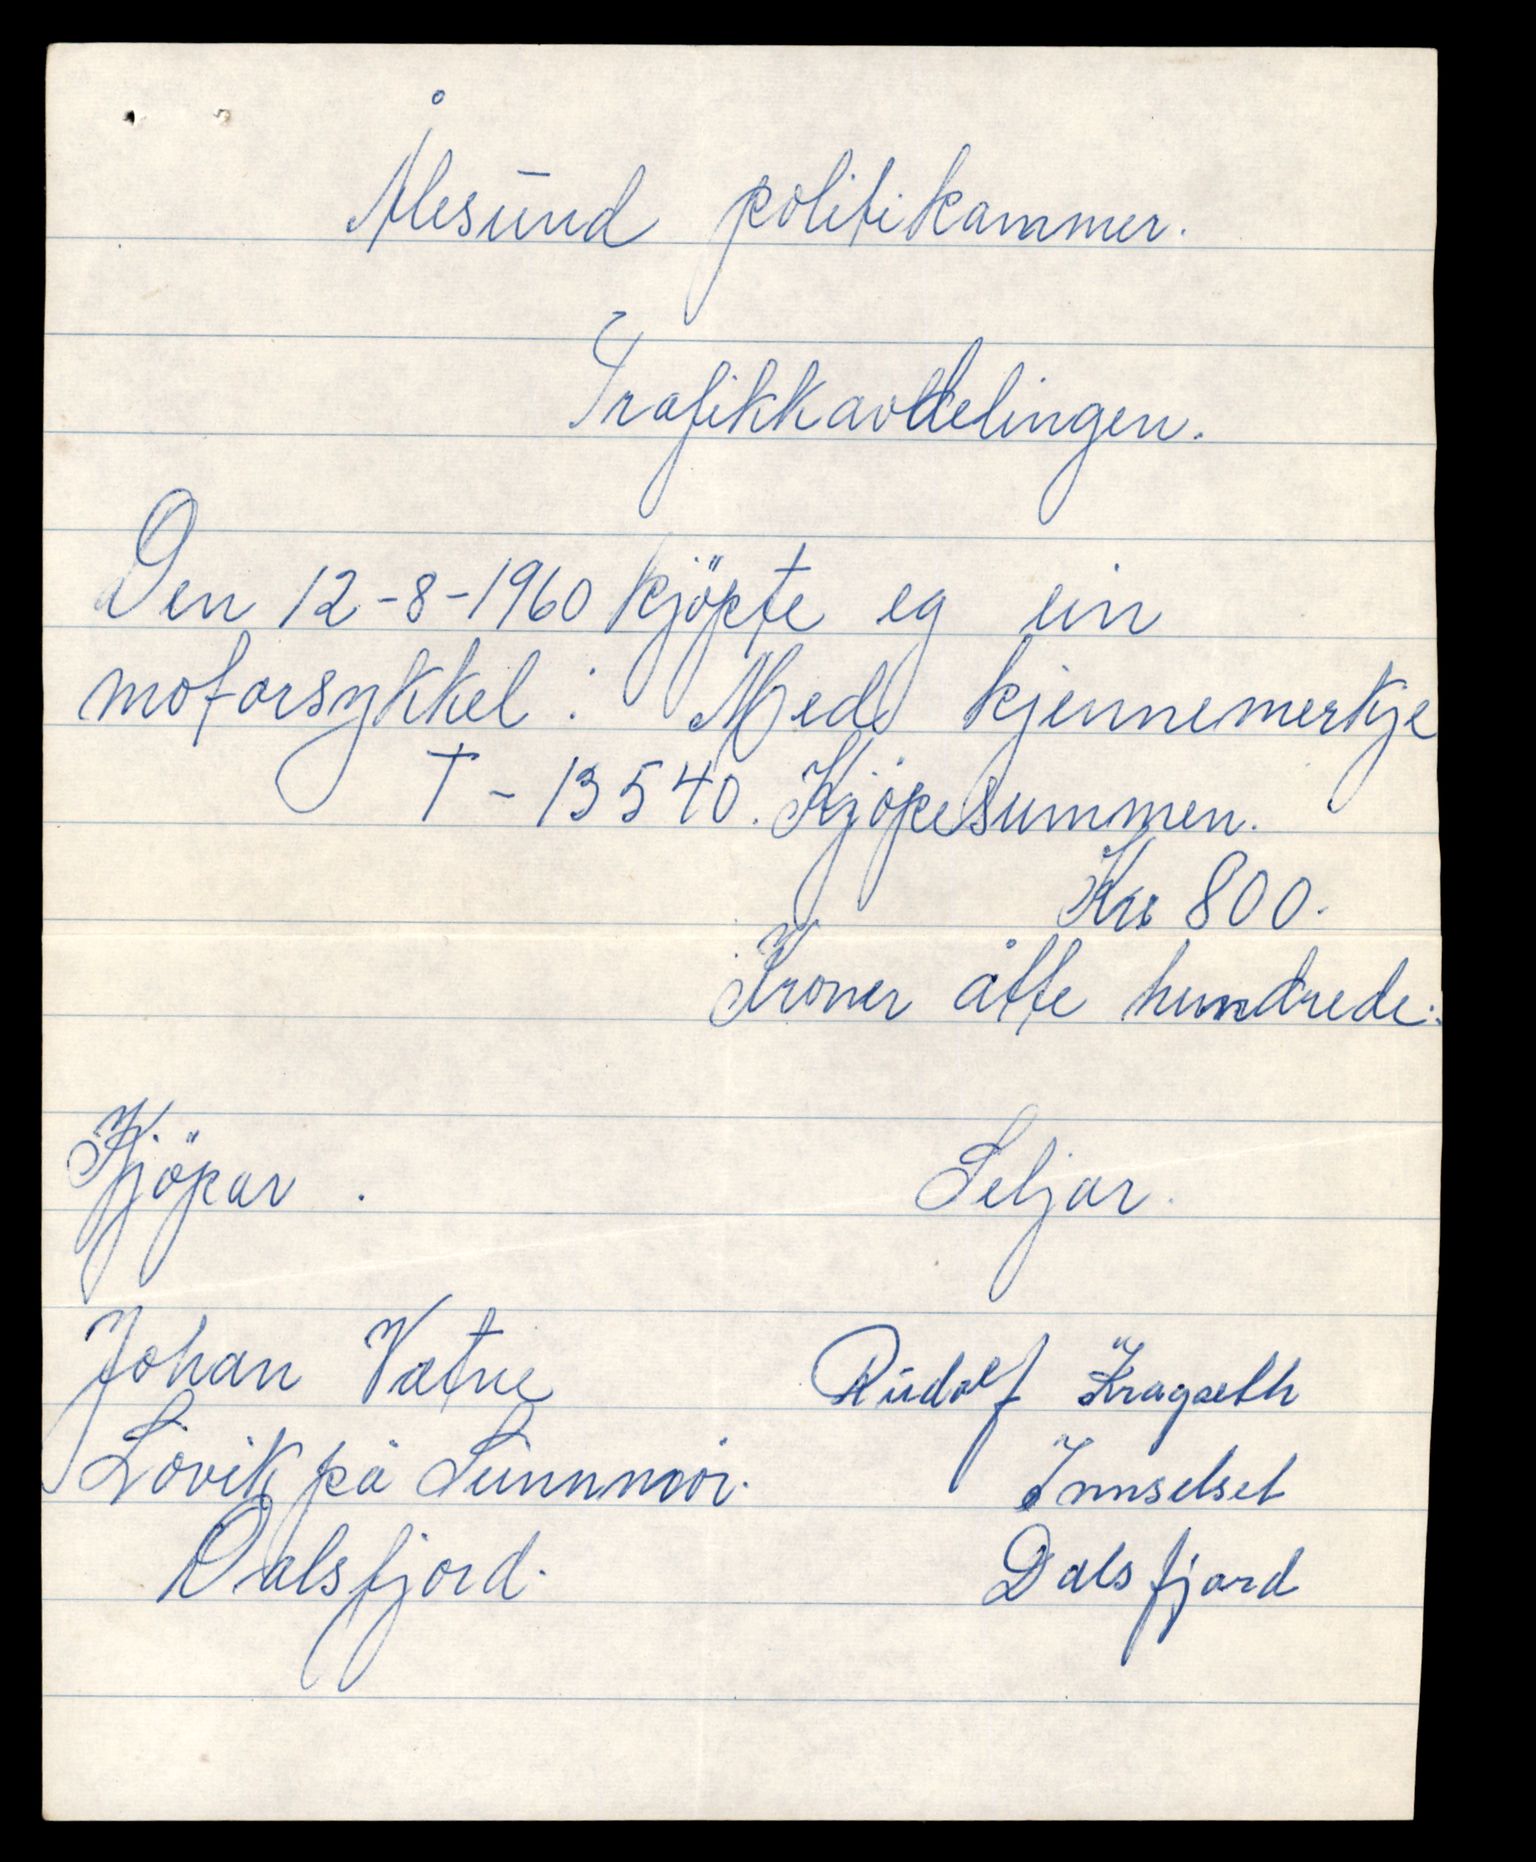 Ålesund politikammer.
Trafikkavdelingen.
Den 12-8-1960 kjöpte eg ein
motorsykkel : Med kjennemerkje
T - 13540. Kjöpesummen.
Kr 800.
Kroner åtte hundrede.
Kjöpar . Seljar.
Johan Vatne Rudolf Kragseth
Lövik på Sunnmör. Innselset
Dalsfjord. Dalsfjord